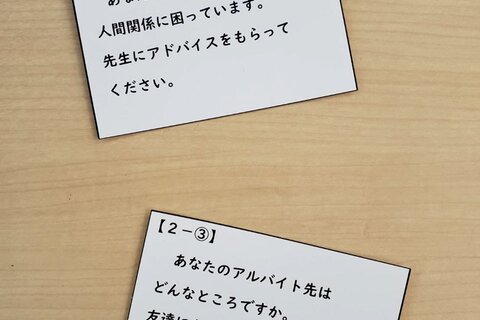 人間関係に困っています。
先生にアドバイスをもらって
ください。
【2-③】
あなたのアルバイト先は
どんなところですか。